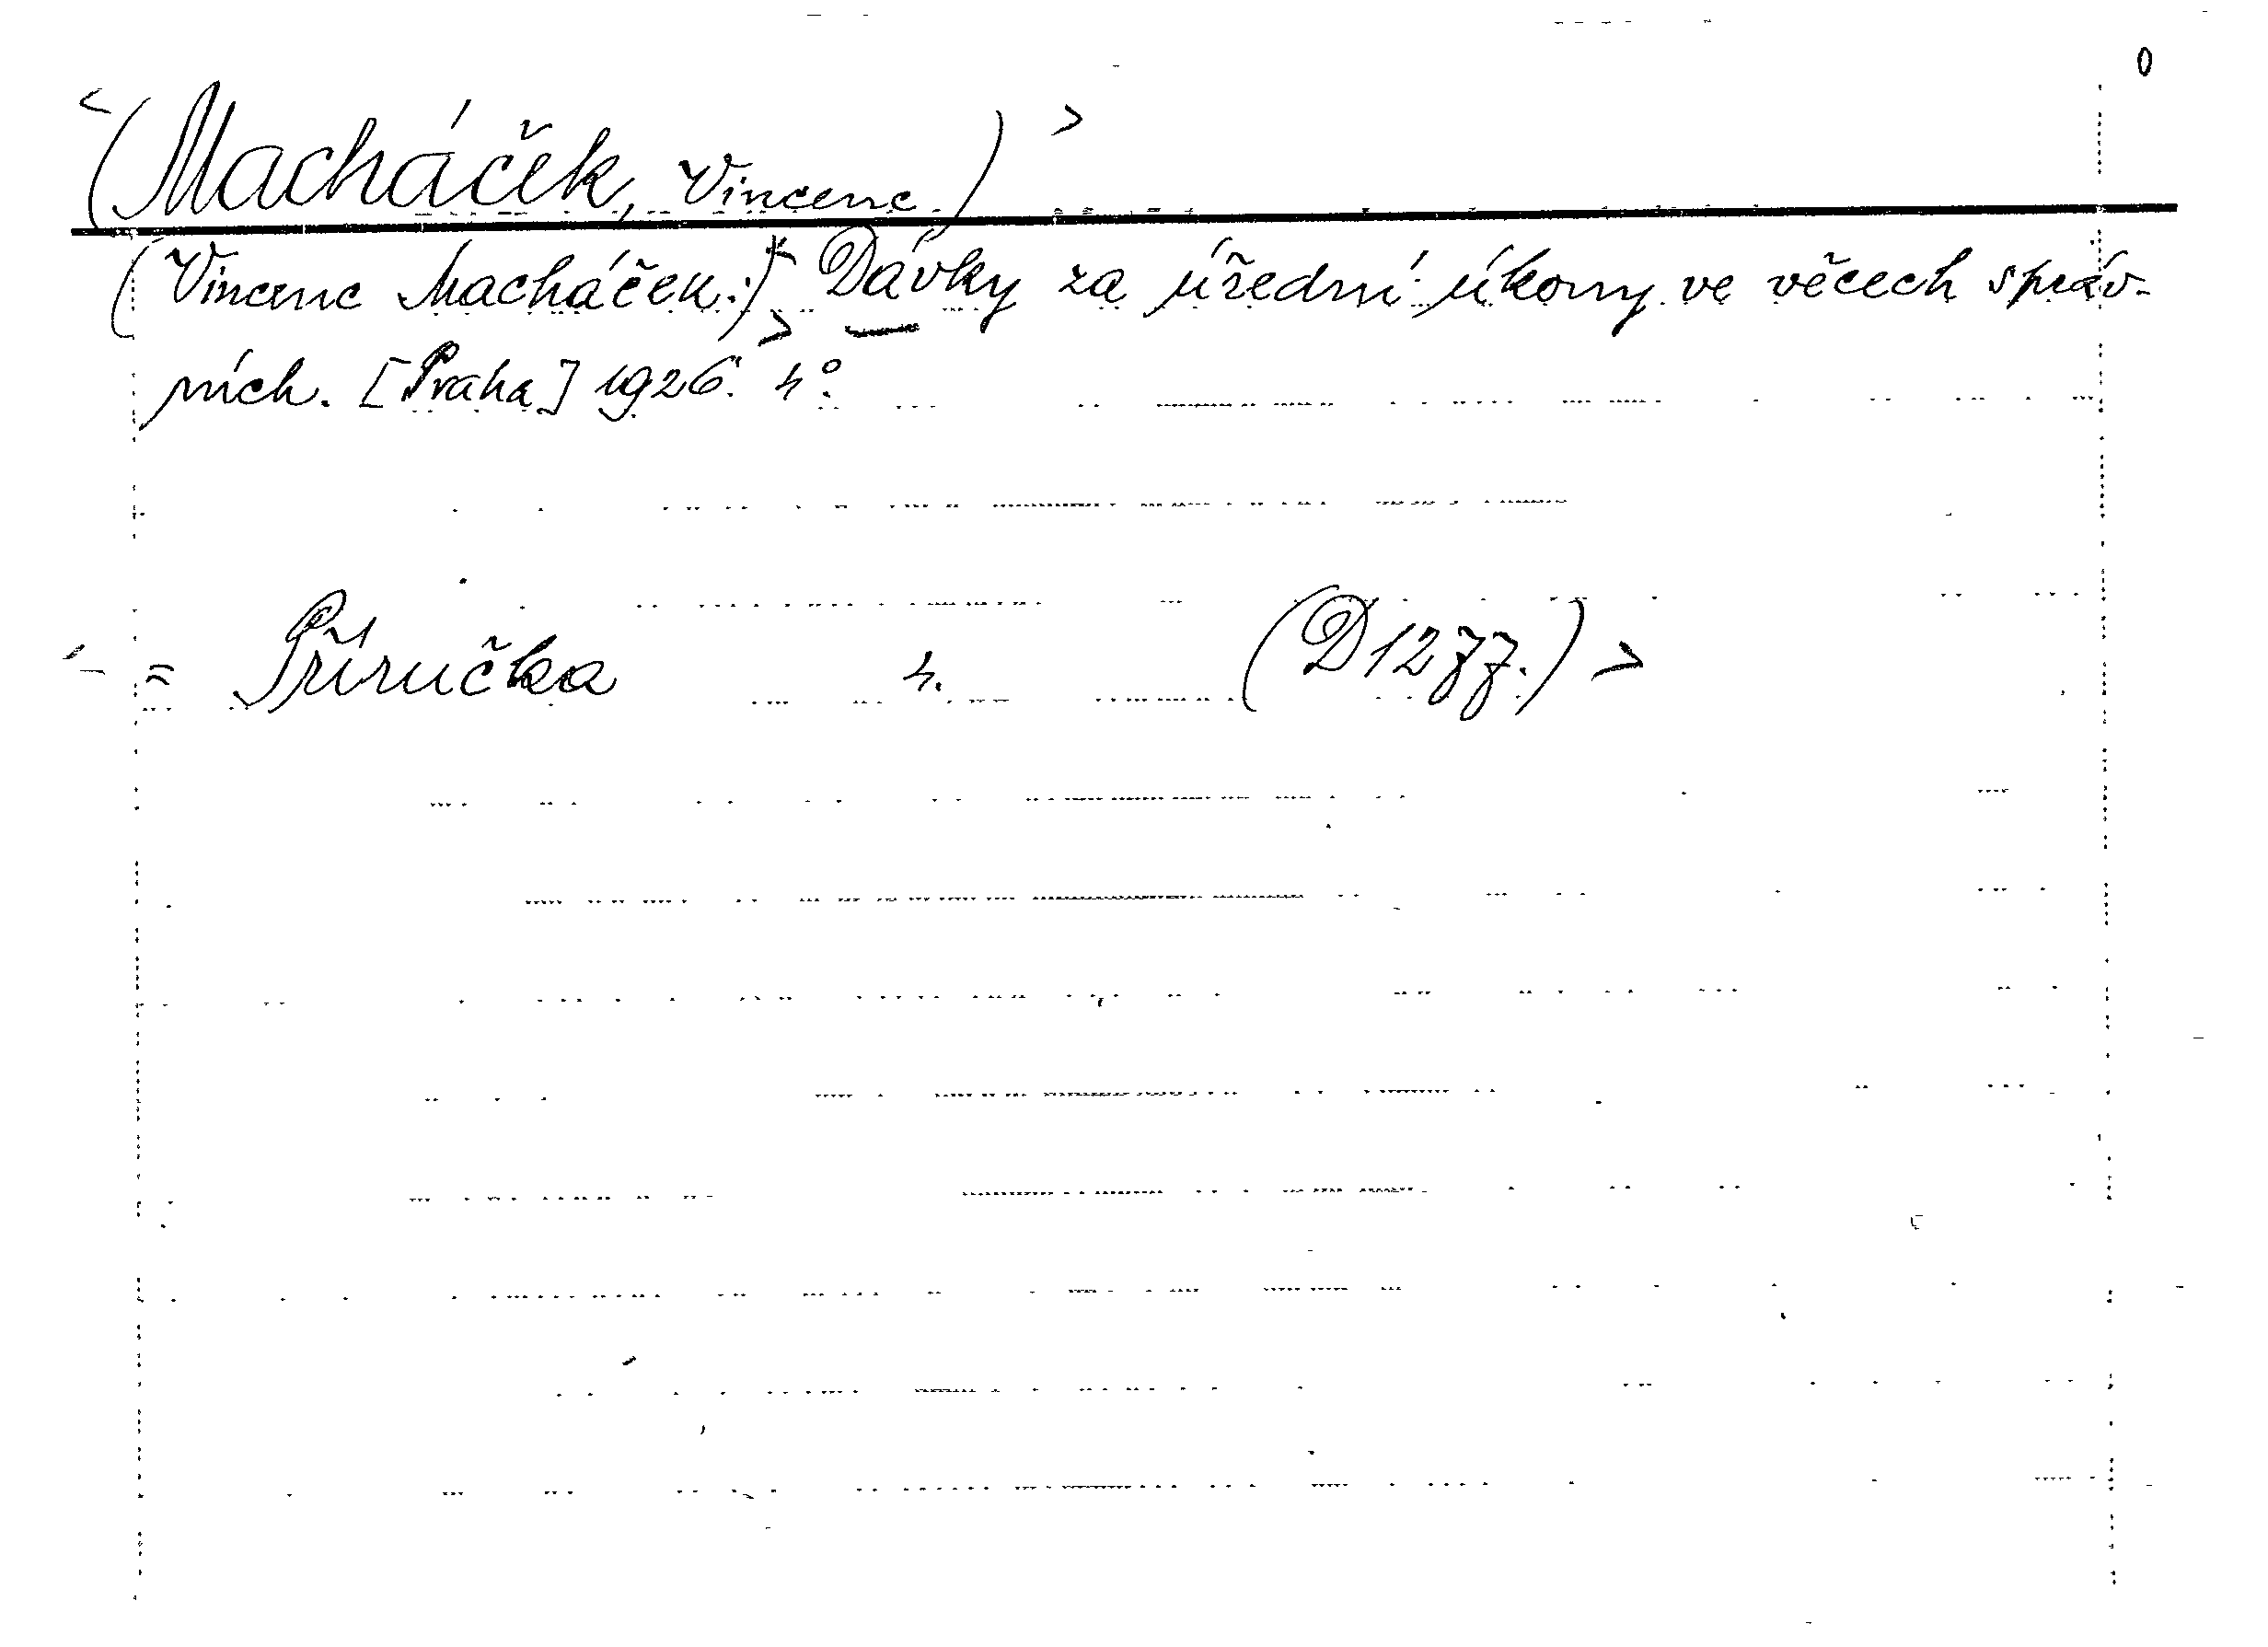 0
<(Macháček, Vincenc.)>
(Vincenc Macháček:)> Dávky za úřední úkony ve věcech správ-
ních. [Praha] 1926. 4°.
= Příručka 4. (D 1277.)>